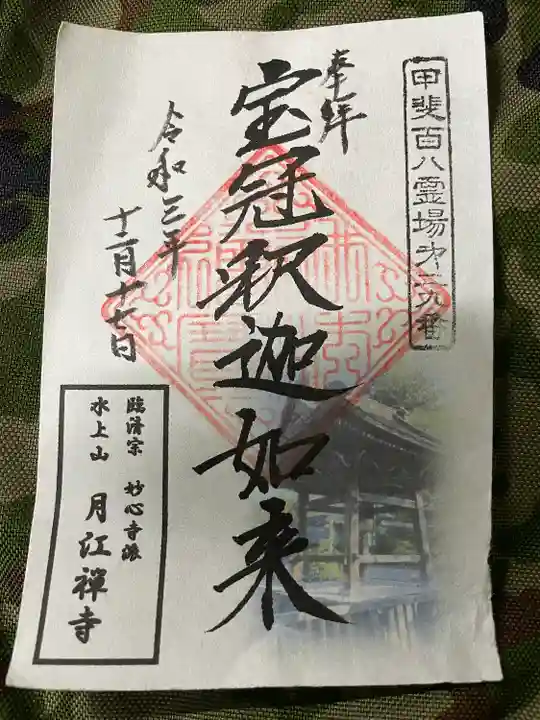 甲斐百八霊場第三九番
奉拝
宝冠釈迦如来
令和三年
十二月十七日
臨済宗 妙心寺派
水上山 月江禅寺